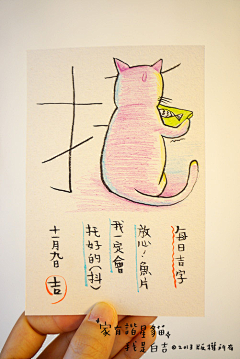 每日吉字
放心！魚片
我一定會
托好的(抖)
十一月九日
吉
家有諧星貓
我是白吉 ©2013 版權所有